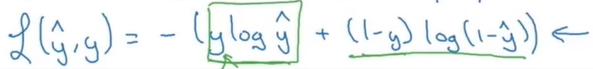 ℒ(ŷ,y) = - (y log ŷ + (1-y) log(1-ŷ)) ←